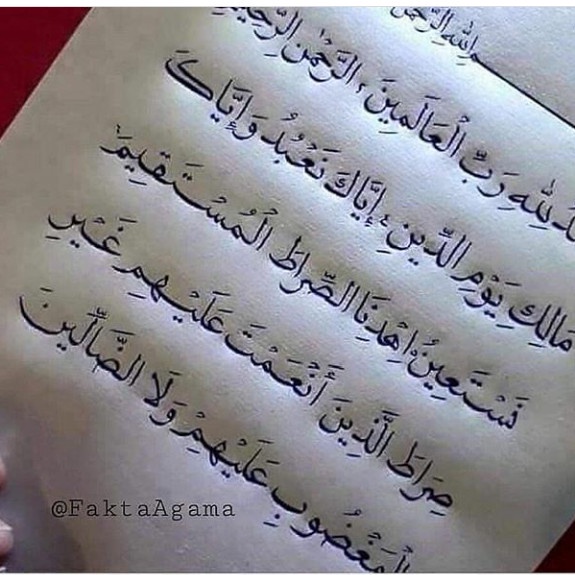 مِ اللهِ الرَّحْمٰنِ
دُ لِلهِ رَبِّ الْعَالَمِينَ، الرَّحْمٰنِ الرَّحِيمِ
مَالِكِ يَوْمِ الدِّينِ، إِيَّاكَ نَعْبُدُ وَإِيَّاكَ
نَسْتَعِينُ، اِهْدِنَا الصِّرَاطَ الْمُسْتَقِيمَ
صِرَاطَ الَّذِينَ أَنْعَمْتَ عَلَيْهِمْ غَيْرِ
الْمَغْضُوبِ عَلَيْهِمْ وَلَا الضَّالِّينَ
@FaktaAgama